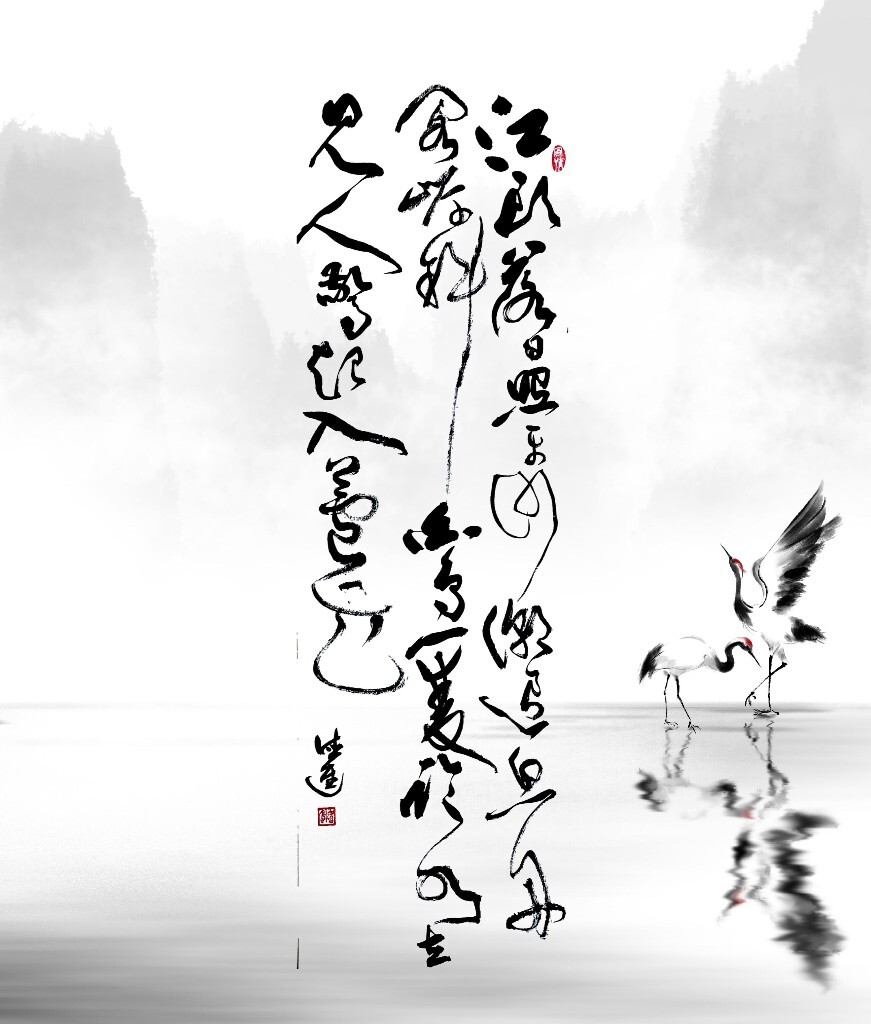 江頭落日照平沙潮退魚舟
閣岸斜白鳥一雙臨水立
見人驚起入蘆花